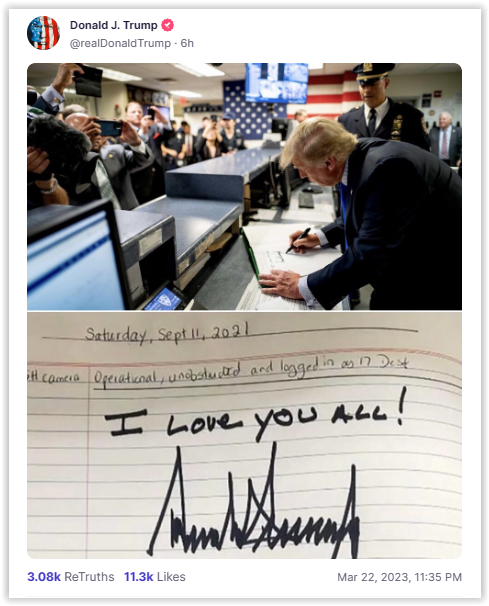 Donald J. Trump
@realDonaldTrump · 6h
Saturday, Sept 11, 2021
camera Operational, unobstructed and logged in as 17 Dest
I LOVE YOU ALL!
3.08k ReTruths 11.3k Likes Mar 22, 2023, 11:35 PM